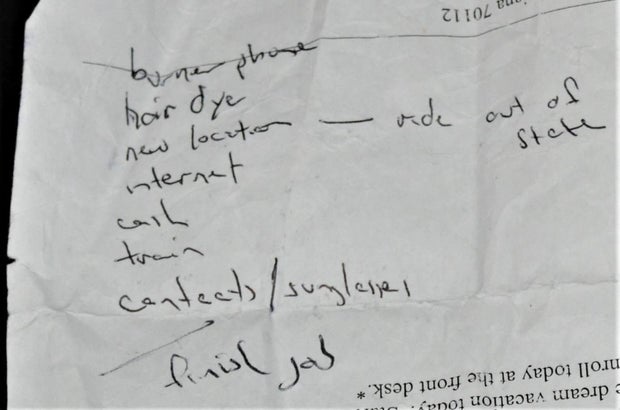 burner phone
hair dye
new location — ride out of
state
internet
cash
train
contacts/sunglasses
finish job
70112
nroll today at the front desk.*
e dream vacation today.